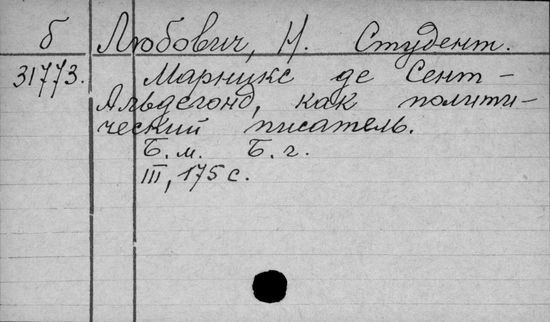 б Любович, Н. Студент.
31773. Марникс де Сент-
Альдегонд, как полити-
ческий писатель.
Б.м. Б.г.
III, 175 с.